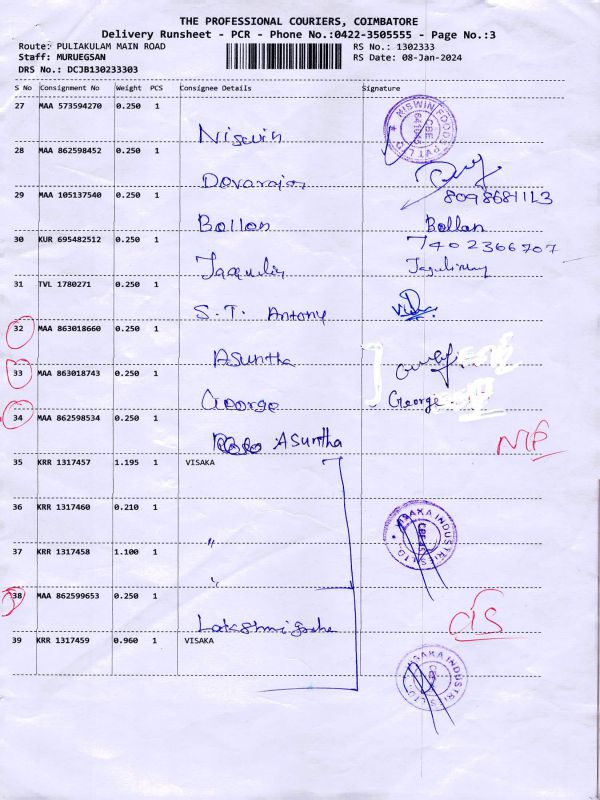 THE PROFESSIONAL COURIERS, COIMBATORE
Delivery Runsheet - PCR - Phone No.:0422-3505555 - Page No.:3
Route: PULIAKULAM MAIN ROAD RS No.: 1302333
Staff: MURUEGSAN RS Date: 08-Jan-2024
DRS No.: DCJB130233303
S No Consignment No Weight PCS Consignee Details Signature
27 MAA 573594270 0.250 1
Niswin
NISWIN FOODS PVT LTD CBE
28 MAA 862598452 0.250 1
Devarajan
8098681113
29 MAA 105137540 0.250 1
Bollan Bollan
7402366707
30 KUR 695482512 0.250 1
Jaqulin
31 TVL 1780271 0.250 1
S.T. Antony
32 MAA 863018660 0.250 1
Asuntha
33 MAA 863018743 0.250 1
George George
34 MAA 862598534 0.250 1
Asuntha
35 KRR 1317457 1.195 1 VISAKA
36 KRR 1317460 0.210 1
"
VISAKA INDUSTRIES LTD. CBE
37 KRR 1317458 1.100 1
"
38 MAA 862599653 0.250 1
39 KRR 1317459 0.960 1 VISAKA
VISAKA INDUSTRIES LTD.